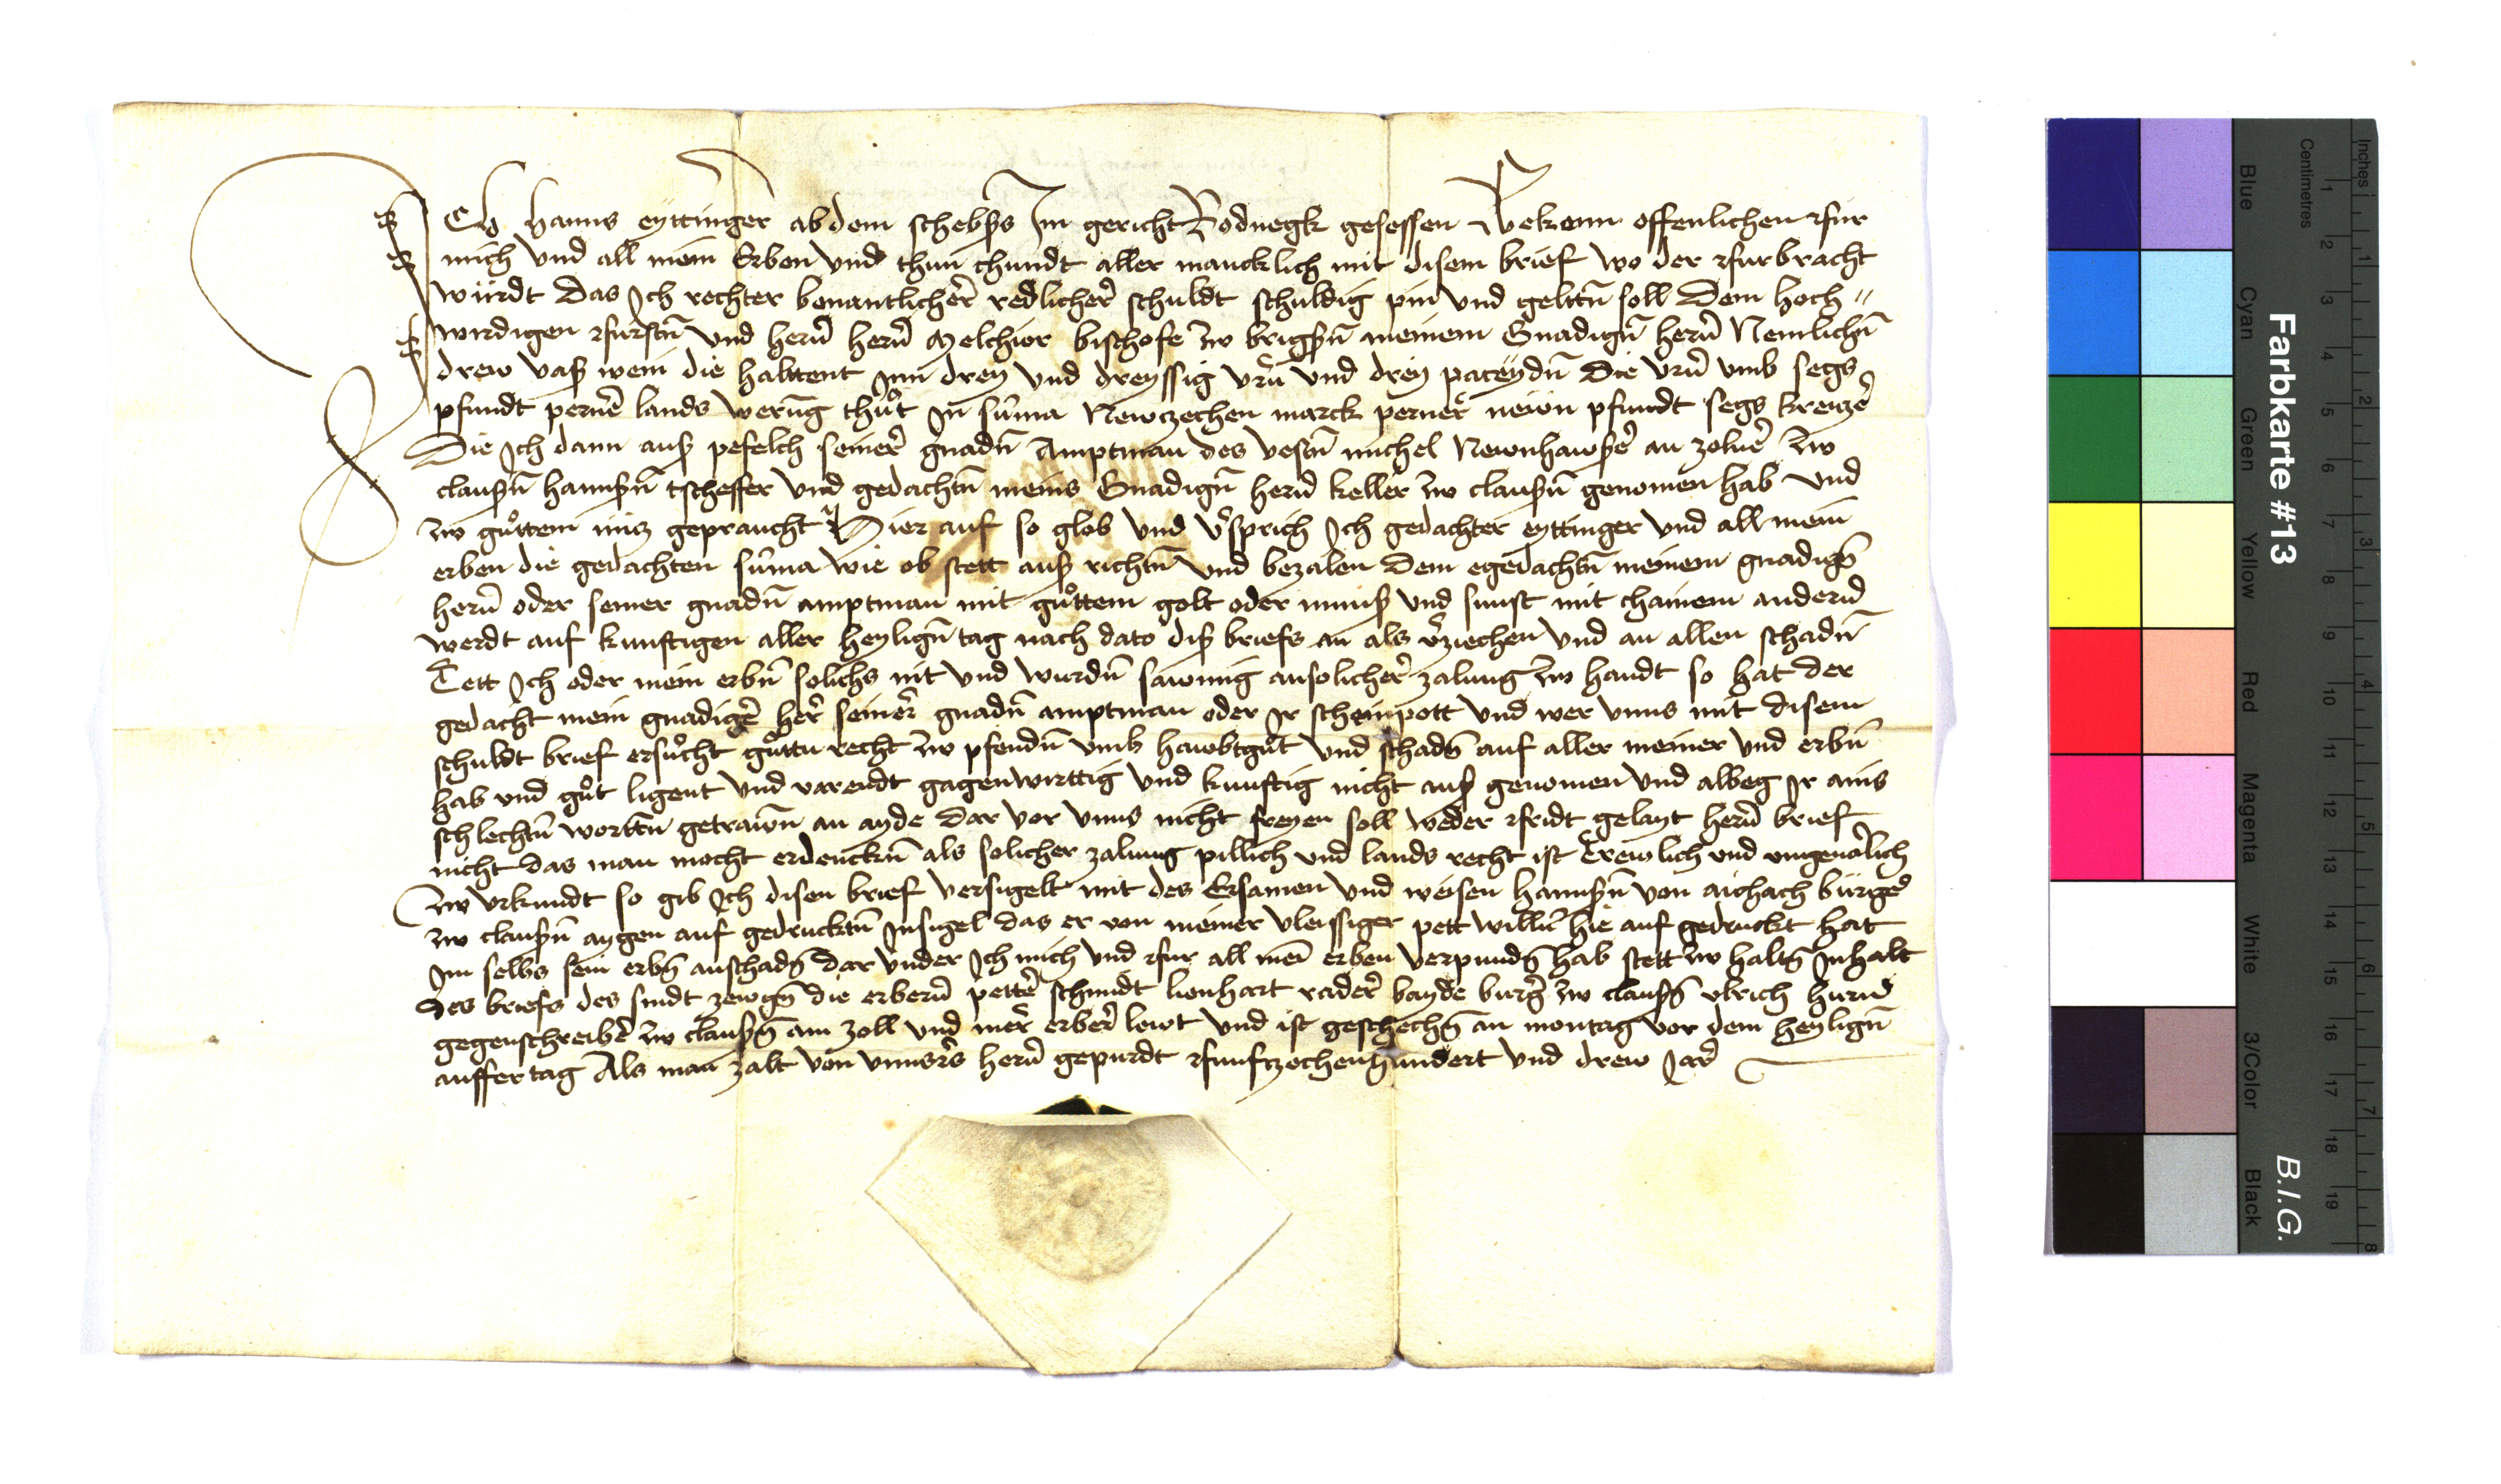 Ich hanns eyttinger ab dem schebss Im gericht Rodnegk gesessen Bekenn offenlichen fur
mich vnd all mein Erben vnd thun chundt aller mancklich mit disem brief wo der furbracht
wurdt Das Ich rechter benantlicher redlicher schuldt schuldig pin vnd geltn̄ soll Dem hoch"
wirdigen furstn̄ vnd hern̄ hern̄ Melchior bischofe zw brigsn̄ meinem Gnadign̄ hern̄ Nemlichn̄
drew vas wein die halttent Inn drey vnd dreyssig vrn̄ vnd drey pateydn̄ Die vrn̄ vmb segs
pfundt perner lands werūg thůt In sūma Newczechen marck perner newn pfundt segs kreitzer
Die Ich dann aus pefelch seiner gnadn̄ Amptman des vestn̄ michel Newnhawser an zolner zw
clausn̄ hannsn̄ tscheffer vnd gedachtn̄ meins Gnadign̄ hern̄ keller zw clausn̄ genomen hab vnd
zw gůttem nitz gepraucht Hier auf so glob vnd v̄sprich Ich gedachter eyttinger vnd all mein
erben die gedachten sūma wie ob stett aus richtn̄ vnd bezalen Dem egedachtn̄ meinem gnadign̄
hern̄ oder seiner gnadn̄ amptman mit gůttem golt oder munss vnd sunst mit chainem andern̄
werdt auf kunftigen aller heylign̄ tag nach dato dis briefs an als v̄ziechen vnd an allen schadn̄
Tett Ich oder mein erbn̄ solichs nit vnd wurdn̄ sawmig an solicher zalung zw handt so hat der
gedacht mein gnadiger her seiner gnadn̄ amptman oder Ir scheinpott vnd wer vnns mit disem
schuldt brief ersůcht gůttn recht zw pfendn̄ vmb hawbtgůt vnd schadn̄ auf aller meiner vnd erbn̄
hab vnd gůt ligent vnd varendt gagenwirttig vnd kunftig nicht aus genomen vnd albeg Ir ains
schlechtn̄ worttn̄ getrawn̄ an ayde Dar vor vnns nicht freyen soll weder fridt gelayt hern̄ brief
nicht das man mocht erdenckn̄ als solicher zalung pillich vnd lands recht ist Trewlich vnd vngeuerlich
Zw vrkundt so gib Ich disen brief versigelt mit des Ersamen vnd weisen hannsn̄ von aichach burger
zw clausn̄ aygen auf gedrucktn̄ Insigel das er von meiner vleissiger pett willn̄ hie auf gedruckt hat
Im selbs sein erbn̄ an schadn̄ Dar vnder Ich mich vnd fur all mein erben verpundn̄ hab stett zw haltn̄ Inhalt
des briefs des sindt zewgn̄ die erbern̄ petter schmidt lienhart rader bayde burger zw clausn̄ vlrich hurnd
gegenschreiber zw clausn̄ am zoll vnd mer erber lewt vnd ist geschechn̄ an montag vor dem heylign̄
auffertag Als man zalt von vnnsers hern̄ gepurdt funfzechenhundert vnd drew Jar
Farbkarte #13
B.I.G.
Centimetres
Inches
Blue
Cyan
Green
Yellow
Red
Magenta
White
3/Color
Black
1 2 3 4 5 6 7 8 9 10 11 12 13 14 15 16 17 18 19
1 2 3 4 5 6 7 8